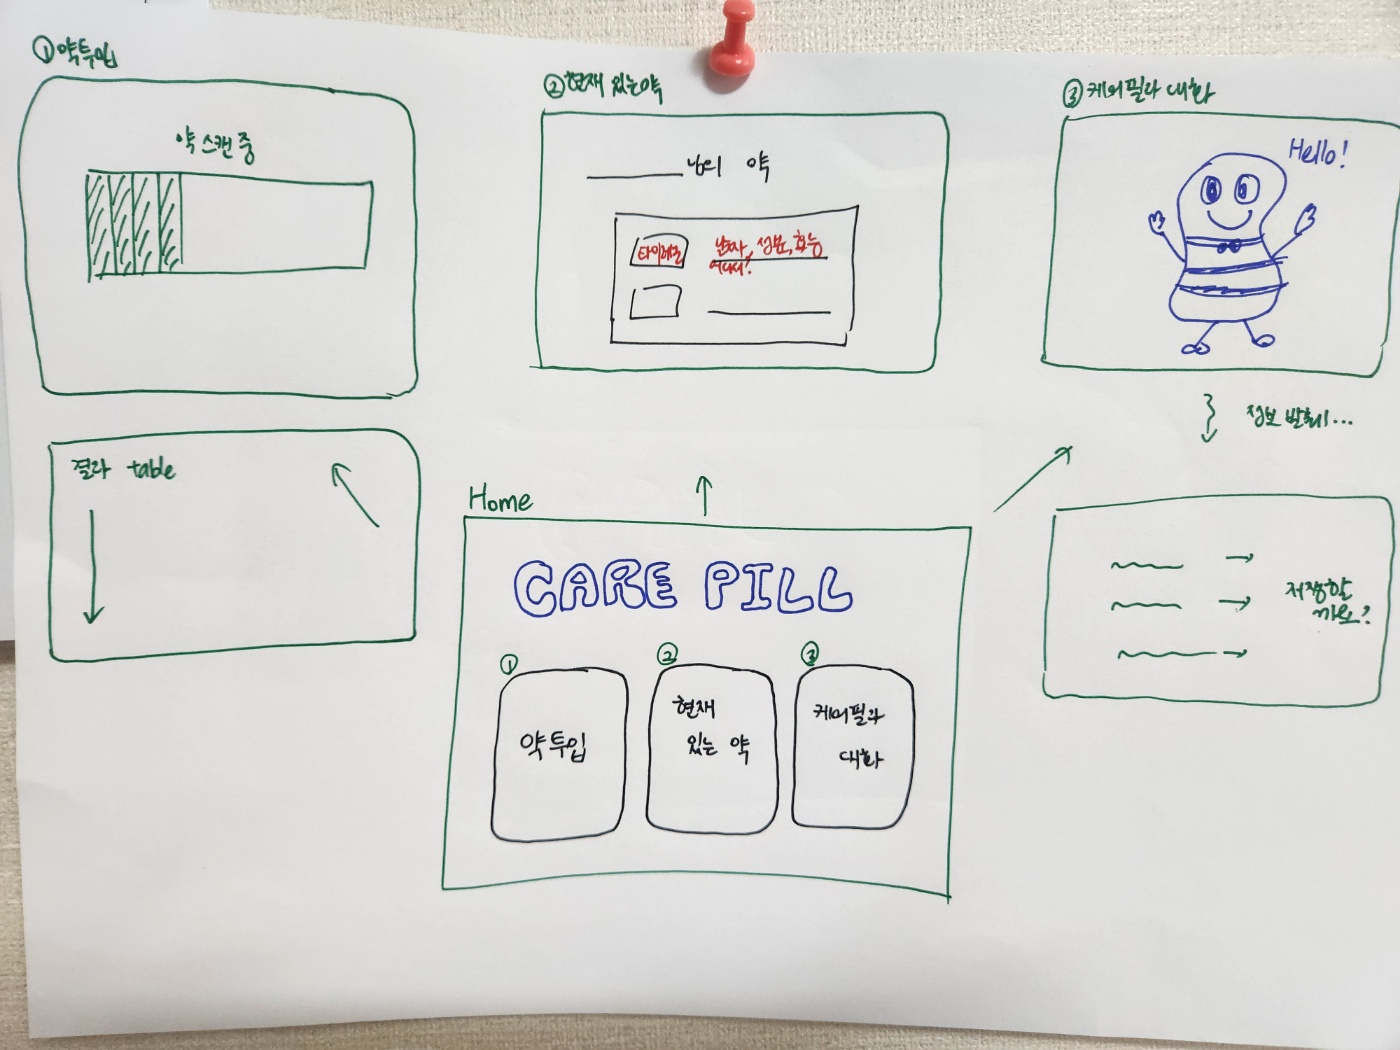 ① 약투입
약 스캔 중
결과 table
② 현재 있는 약
님의 약
타이레놀
날짜, 성분, 효능
어디서?
③ 케어필과 대화
Hello!
정보 발췌...
저장할
까요?
Home
CARE PILL
①
약투입
②
현재
있는 약
③
케어필과
대화